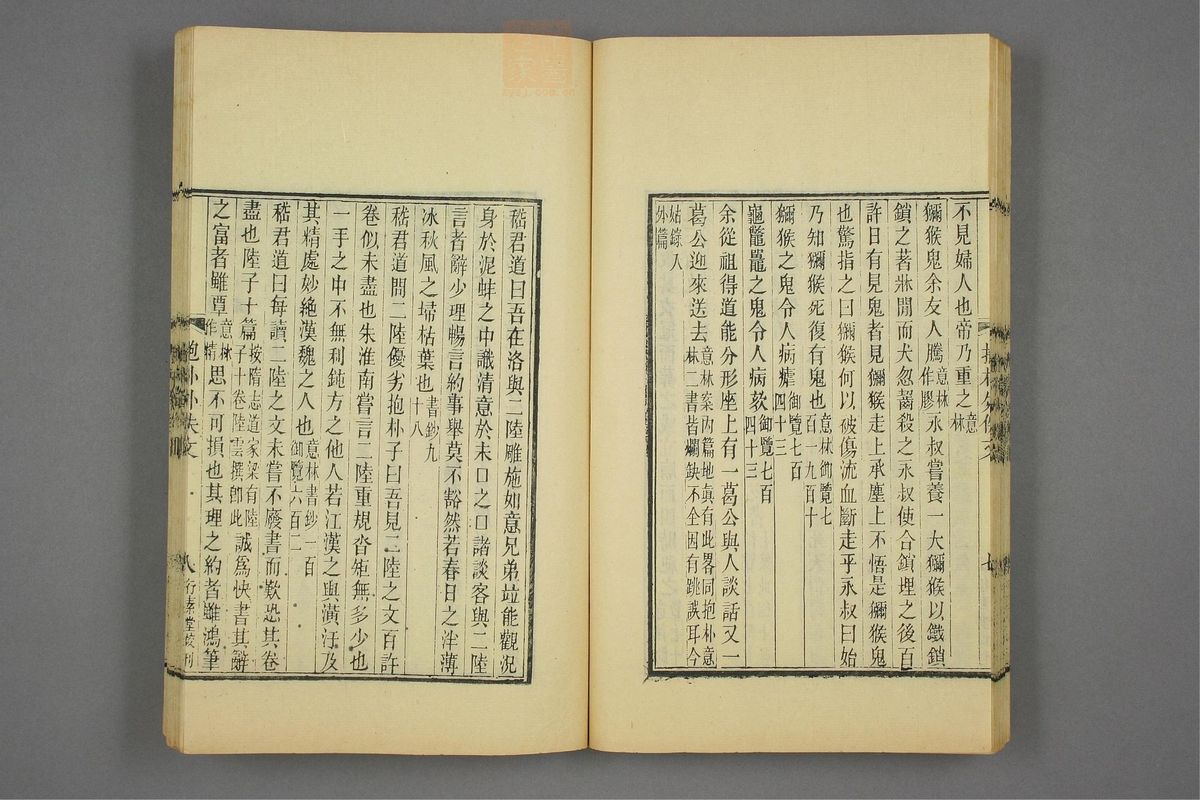 不見婦人也帝乃重之意林
獼猴鬼余友人騰意林作膠永叔嘗養一大獼猴以鐵鎖
鎖之著牀間而犬忽齧殺之永叔使合鎖埋之後百
許日有見鬼者見獼猴走上承塵上不悟是獼猴鬼
也驚指之曰獼猴何以破傷流血斷走乎永叔曰始
乃知獼猴死復有鬼也意林御覽七百一九百十
獼猴之鬼令人病瘧御覽七百四十三
龜鼈鼉之鬼令人病欬御覽七百四十三
余從祖得道能分形座上有一葛公與人談話又一
葛公迎來送去意林案內篇地眞有此畧同抱朴意林二書皆爛缺不全因有跳誤耳今
姑錄入外篇
七
嵇君道曰吾在洛與二陸雕施如意兄弟竝能觀況
身於泥蚌之中識清意於未口之口諸談客與二陸
言者辭少理暢言約事舉莫不豁然若春日之泮薄
冰秋風之埽枯葉也書鈔九十八
嵇君道問二陸優劣抱朴子曰吾見二陸之文百許
卷似未盡也朱淮南嘗言二陸重規沓矩無多少也
一手之中不無利鈍方之他人若江漢之與潢汙及
其精處妙絶漢魏之人也意林書鈔一百御覽六百二
嵇君道曰每讀二陸之文未嘗不廢書而歎恐其卷
盡也陸子十篇按隋志道家梁有陸子十卷陸雲撰卽此誠爲快書其辭
之富者雖覃意林作精思不可損也其理之約者雖鴻筆
抱朴外佚文
八
行素堂校刊